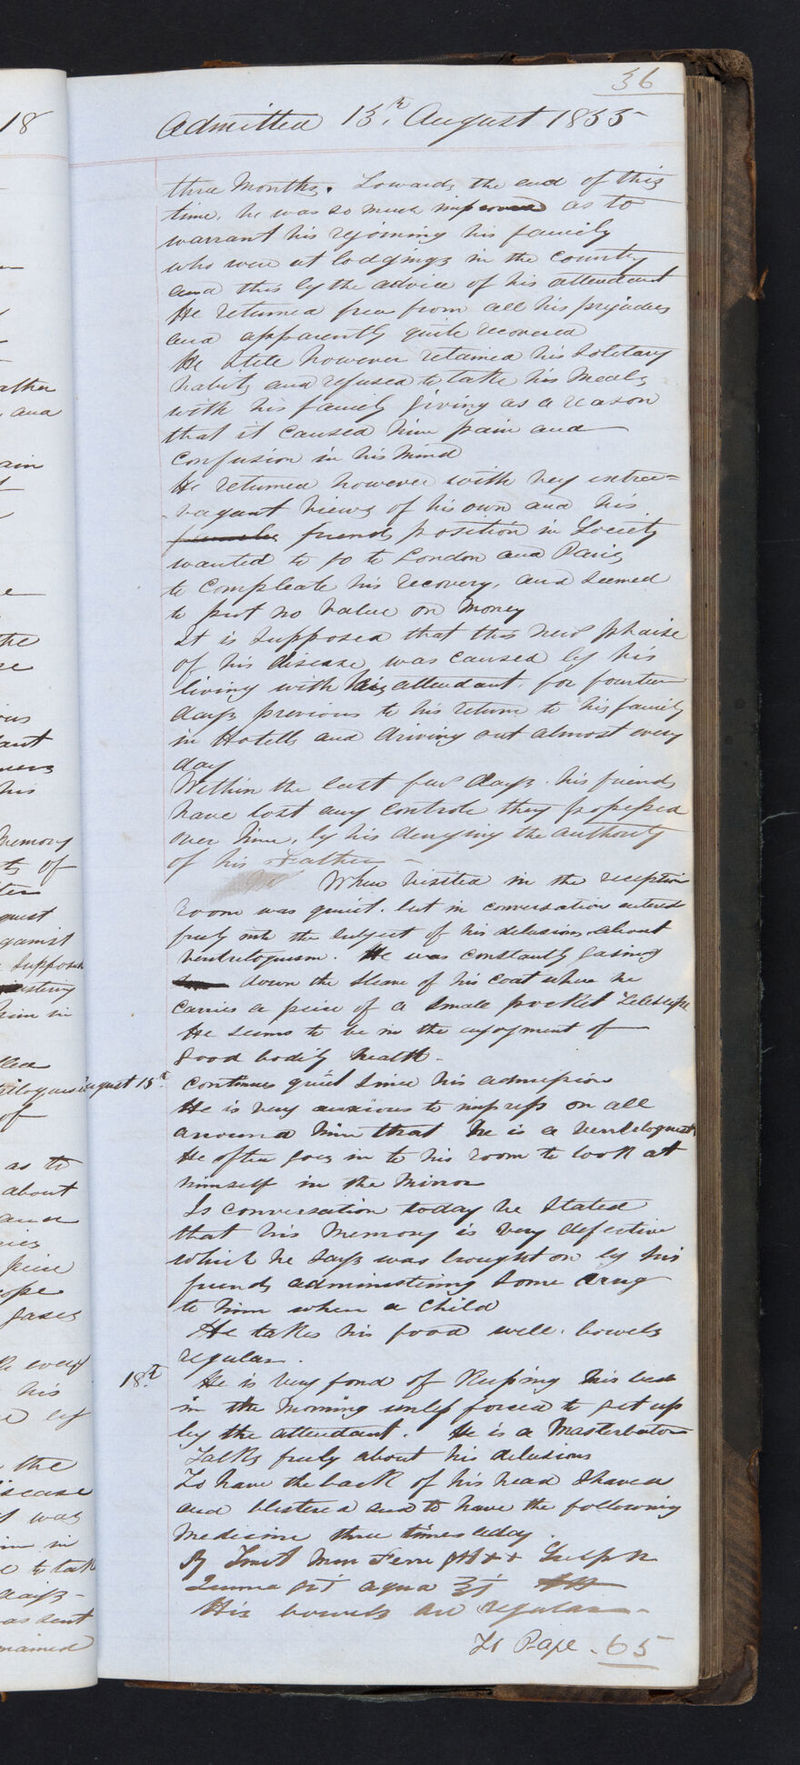 36
Admitted 13th August 1855
three Months. Towards the end of this
time, he was so much improved as to
warrant his rejoining his family
who were at lodgings in the Country
and this by the advice of his attendant
He returned free from all his prejudices
and apparently quite recovered
He still however retained his Solitary
habits and refused to take his Meals
with his family giving as a reason
that it caused him pain and
confusion in his Mind
He returned however with very extra=
=vagant views of his own and his
friends position in Society
wanted to go to London and Paris
to Compleate his recovery, and seemed
to put no value on Money
It is Supposed that this new phaise
of his disease was caused by his
living with his attendant for fourteen
days previous to his return to his family
in Hotells and driving out almost every
day
Within the last few days his friends
have lost any Controle they possessed
over him, by his denying the authority
of his Father -
When Visited in the reception
room was quiet. but in conversation entered
freely into the Subject of his delusions about
Ventriloquism. He was constantly gasing
down the Sleeve of his Coat where he
Carries a peice of a Small pocket Telescope
He seems to be in the enjoyment of
Good bodily health -
August 15th Continues quiet Since his admission
He is very anxious to impress on all
around him that he is a Ventriloquist
He often goes in to his room to look at
himself in the Mirror
In Conversation today he Stated
that his Memory is Very defective
which he Says was brought on by his
friends administering Some drug
to him when a Child
He takes his food well. bowels
regular.
18th He is Very fond of Keeping his bed
in the Morning unless forced to get up
by the attendant. He is a Masterbator
Talks freely about his delusions
To have the back of his head Shaved
and blistered and to have the following
Medicine three times a day.
His bowels are regular -
To Page - 65
18